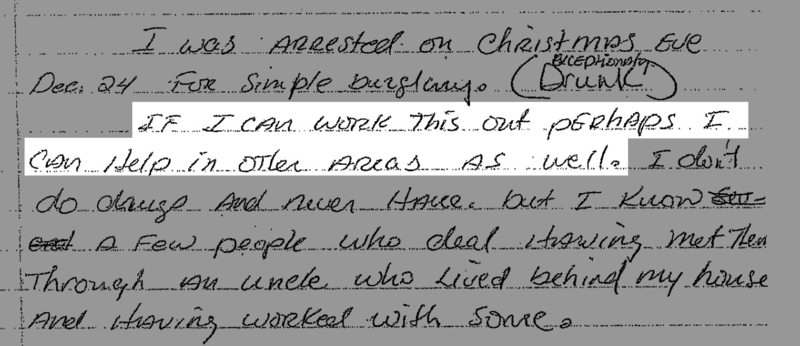 I was Arrested on Christmas Eve
Dec. 24 For Simple burglary. (EXCEPTIONALLY Drunk)
IF I CAN WORK This out pERhAps I
CAN HElp in OTHER AREAS AS well. I don't
do drugs And never HAVE. but I Know
A Few people who deal HAVING Met Them
Through An uncle who Lived behind my house
And HAVING worked with some.